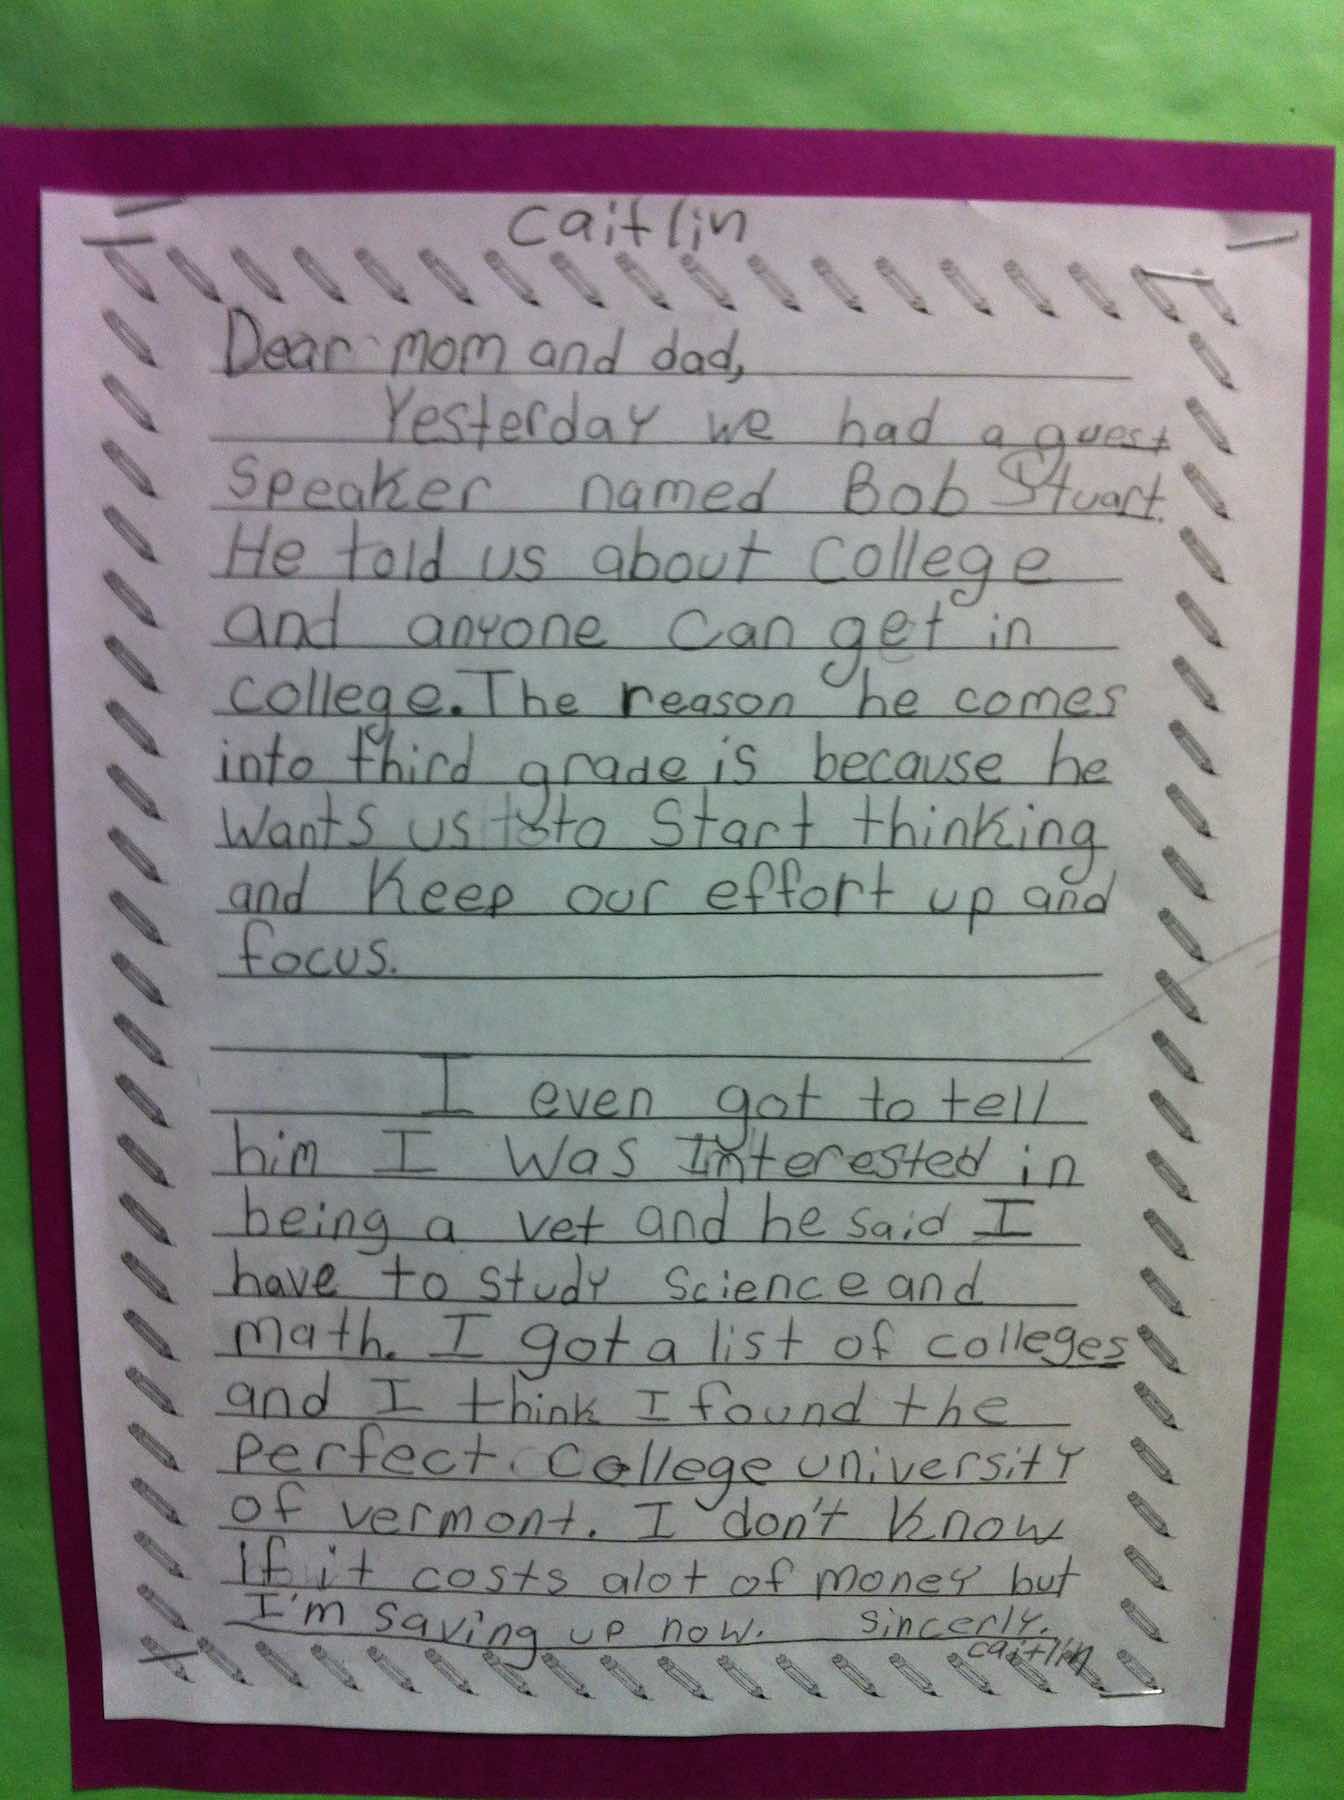 Caitlin
Dear mom and dad,
Yesterday we had a guest
speaker named Bob Stuart.
He told us about college
and anyone can get in
college. The reason he comes
into third grade is because he
wants us to start thinking
and keep our effort up and
focus.
I even got to tell
him I was Interested in
being a vet and he said I
have to study science and
math. I got a list of colleges
and I think I found the
perfect college university
of vermont. I don't know
If it costs alot of money but
I'm saving up now. sincerly,
caitlin